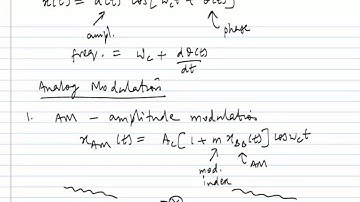 x(t) = a(t) cos[ωct + θ(t)]
ampl. phase
freq. = ωc + dθ(t)/dt
Analog Modulation
1. AM – amplitude modulation
xAM(t) = Ac[1 + m xBB(t)] cos ωct
mod. index AM